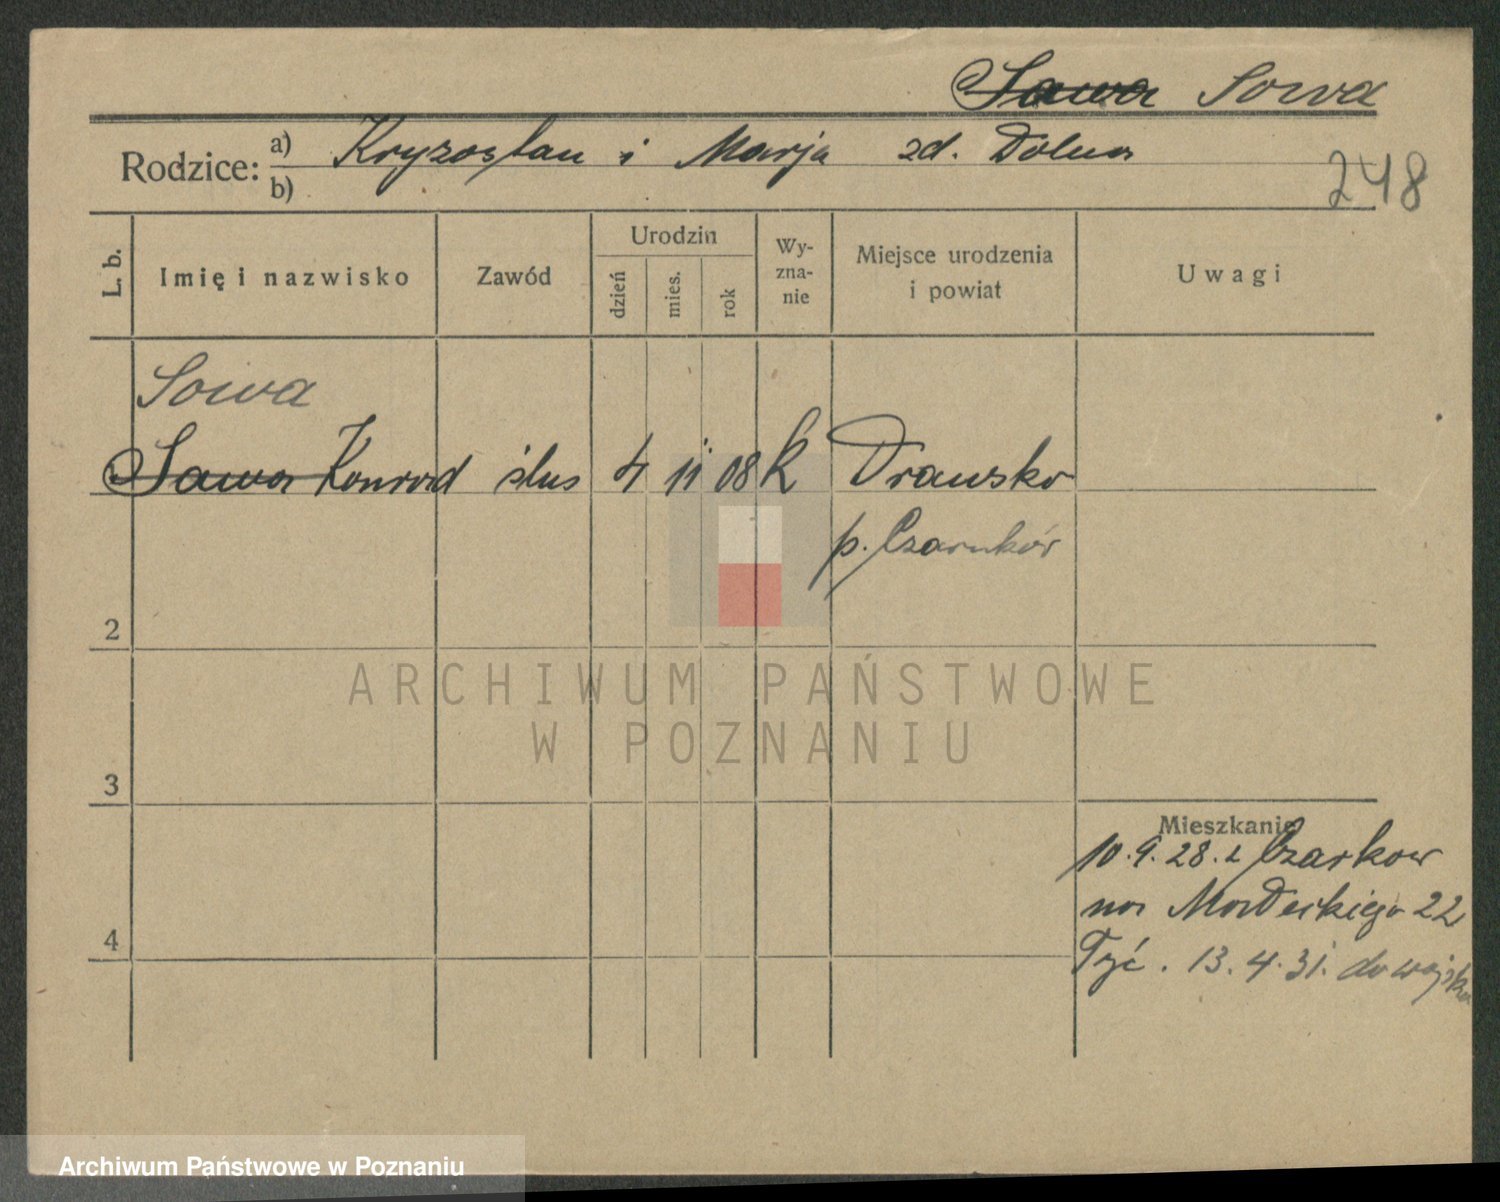 Sawa Sowa
Rodzice: a) Kryzostan i Marja zd. Dolna
b)
248
L. b. Imię i nazwisko Zawód Urodzin dzień mies. rok Wy-zna-nie Miejsce urodzenia i powiat Uwagi
Sowa
Sawa Konrad ślus 4 11 08 k Drawsko
p. Czarnków
2
ARCHIWUM PAŃSTWOWE
W POZNANIU
3
Mieszkanie
10.9.28. z Czarkow
na Mordeckiego 22
4
13.4.31. do wojska
Archiwum Państwowe w Poznaniu